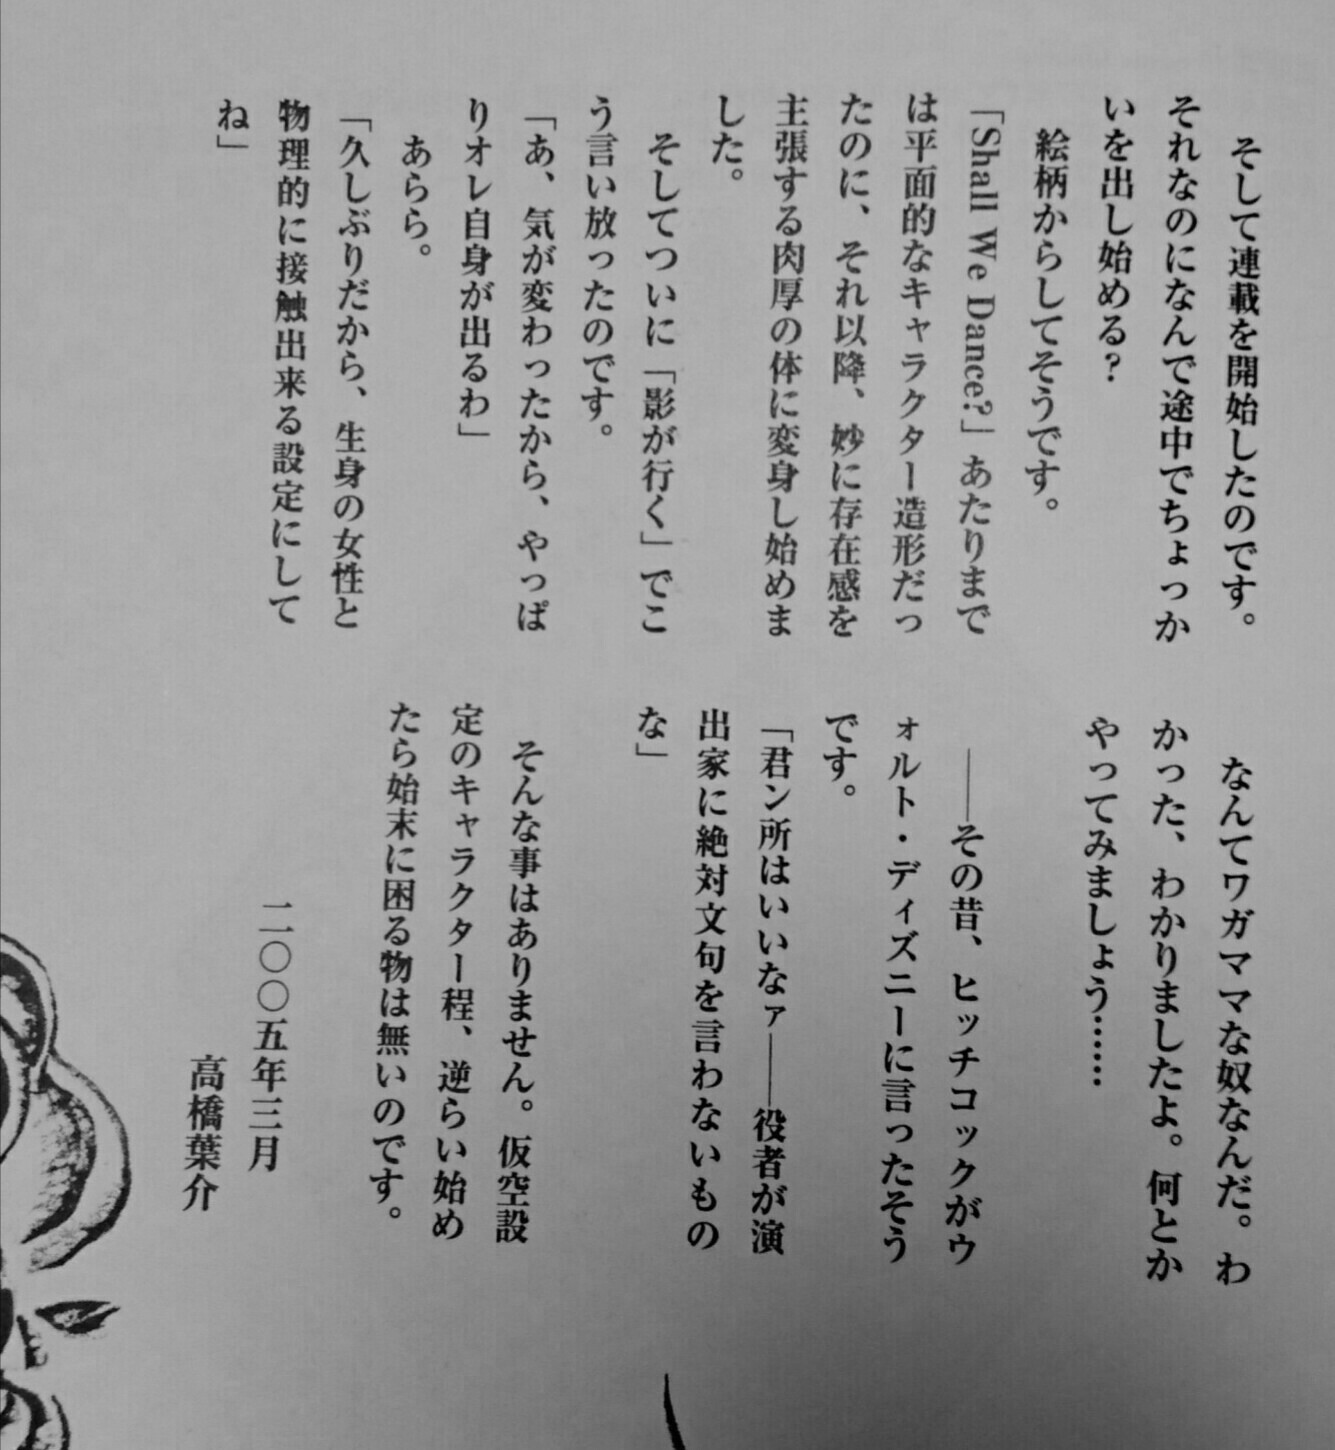 そして連載を開始したのです。
それなのになんで途中でちょっか
いを出し始める？
絵柄からしてそうです。
「Shall We Dance?」あたりまで
は平面的なキャラクター造形だっ
たのに、それ以降、妙に存在感を
主張する肉厚の体に変身し始めま
した。
そしてついに「影が行く」でこ
う言い放ったのです。
「あ、気が変わったから、やっぱ
りオレ自身が出るわ」
あらら。
「久しぶりだから、生身の女性と
物理的に接触出来る設定にして
ね」
なんてワガママな奴なんだ。わ
かった、わかりましたよ。何とか
やってみましょう……
――その昔、ヒッチコックがウ
ォルト・ディズニーに言ったそう
です。
「君ン所はいいなァ――役者が演
出家に絶対文句を言わないもの
な」
そんな事はありません。仮空設
定のキャラクター程、逆らい始め
たら始末に困る物は無いのです。
二〇〇五年三月
高橋葉介